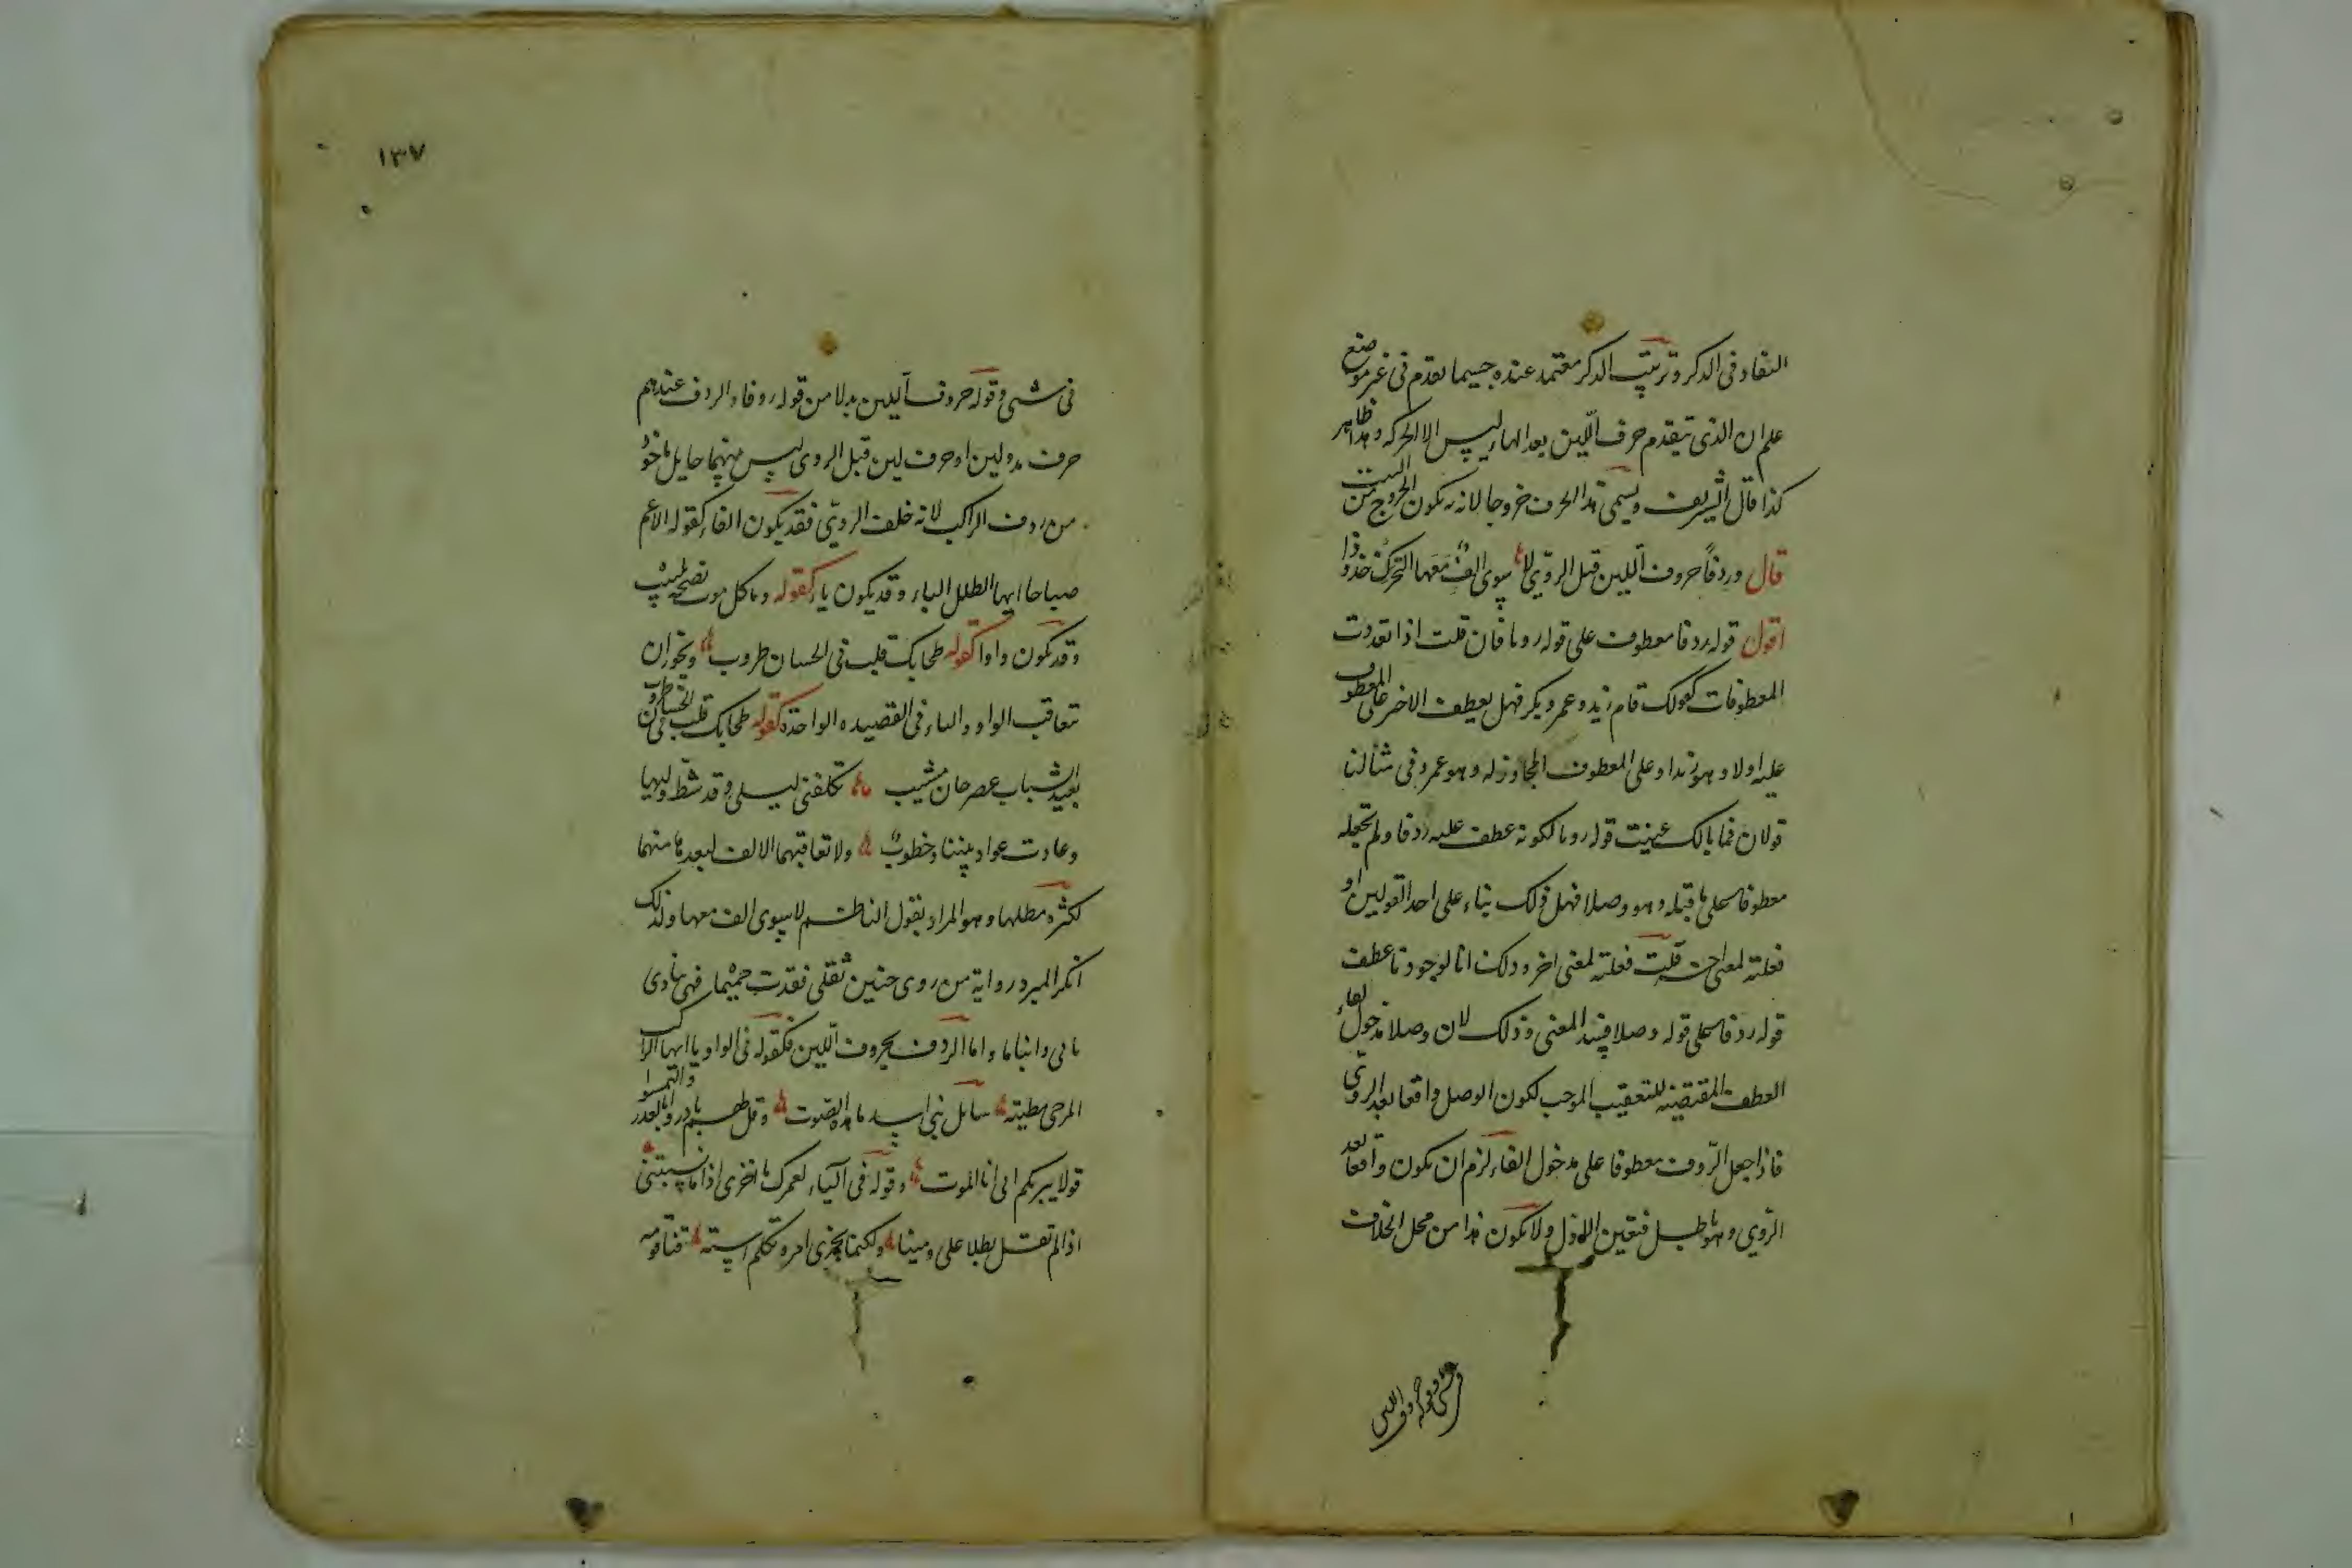 النفاد فى الذكر وترتيب الذكر معتمد عنده حسبما تقدم فى غير موضع
علم ان الذى يتقدم حرف اللين بعد الهاء ليس الا الحركة وهذا ظاهر
كذا قال الشريف ويسمى هذا الحرف خروجا لانه به يكون الخروج من البيت
قال وردفا حروف اللين قبل الروى لا سوى الف معها التحرك حذوذا
اقول قوله ردفا معطوف على قوله رويا فان قلت اذا تعددت
المعطوفات كقولك قام زيد وعمرو وبكر فهل يعطف الاخر على المعطوف
عليه اولا وهو زيد او على المعطوف المجاور له وهو عمرو فى مثالنا
قولان فما بالك عينت قوله رويا لكونه عطف عليه ردفا ولم تجعله
معطوفا على ما قبله وهو وصلا فهل ذلك بناء على احد القولين او
فعلته لمعنى اخر قلت فعلته لمعنى اخر وذلك انا لو جوزنا عطف
قوله ردفا على قوله وصلا فسد المعنى وذلك لان وصلا مدخول لفاء
العطف المقتضية للتعقيب الموجب لكون الوصل واقعا بعد الروى
فاذا جعل الردف معطوفا على مدخول الفاء لزم ان يكون واقعا بعد
الروى وهو باطل فتعين الاول ولا يكون هذا من محل الخلاف
فى شى وقوله حروف اللين
١٣٧
فى شى وقوله حروف اللين بدلا من قوله ردفا والردف عندهم
حرف مد ولين او حرف لين قبل الروى ليس بينهما حايل ماخوذ
من ردف الراكب لانه خلف الروى فقد يكون الفا كقوله الا عم
صباحا ايها الطلل البالى وقد يكون ياء كقوله وما كل موت نصحه بلبيب
وقد يكون واوا كقوله طحا بك قلب فى الحسان طروب ويجوز ان
تتعاقب الواو والياء فى القصيده الواحدة كقوله طحا بك قلب فى الحسان طروب
بعيد الشباب عصر حان مشيب تكلفنى ليلى وقد شط وليها
وعادت عواد بيننا وخطوب ولا تعاقبهما الالف لبعد ما منهما
لكثرة مطلها وهو المراد بقول الناظم لا سوى الف معها ولذلك
انكر المبرد رواية من روى حنين ثقلى فقدت حميما فهى تنادى
بابى وابناما واما الردف بحروف اللين فكقوله فى الواو يا ايها الراكب
المزجى مطيته سايل بنى اسد ما هذه الصوت وقل لهم بادروا بالعذر والتمسوا
قولا يبريكم انى انا الموت وقوله فى الياء لعمرك ما اخزى اذا ما نسبتنى
اذا لم تقل بطلا على ومينا ولكنما يخزى امرو تكلم استه قنا قومه